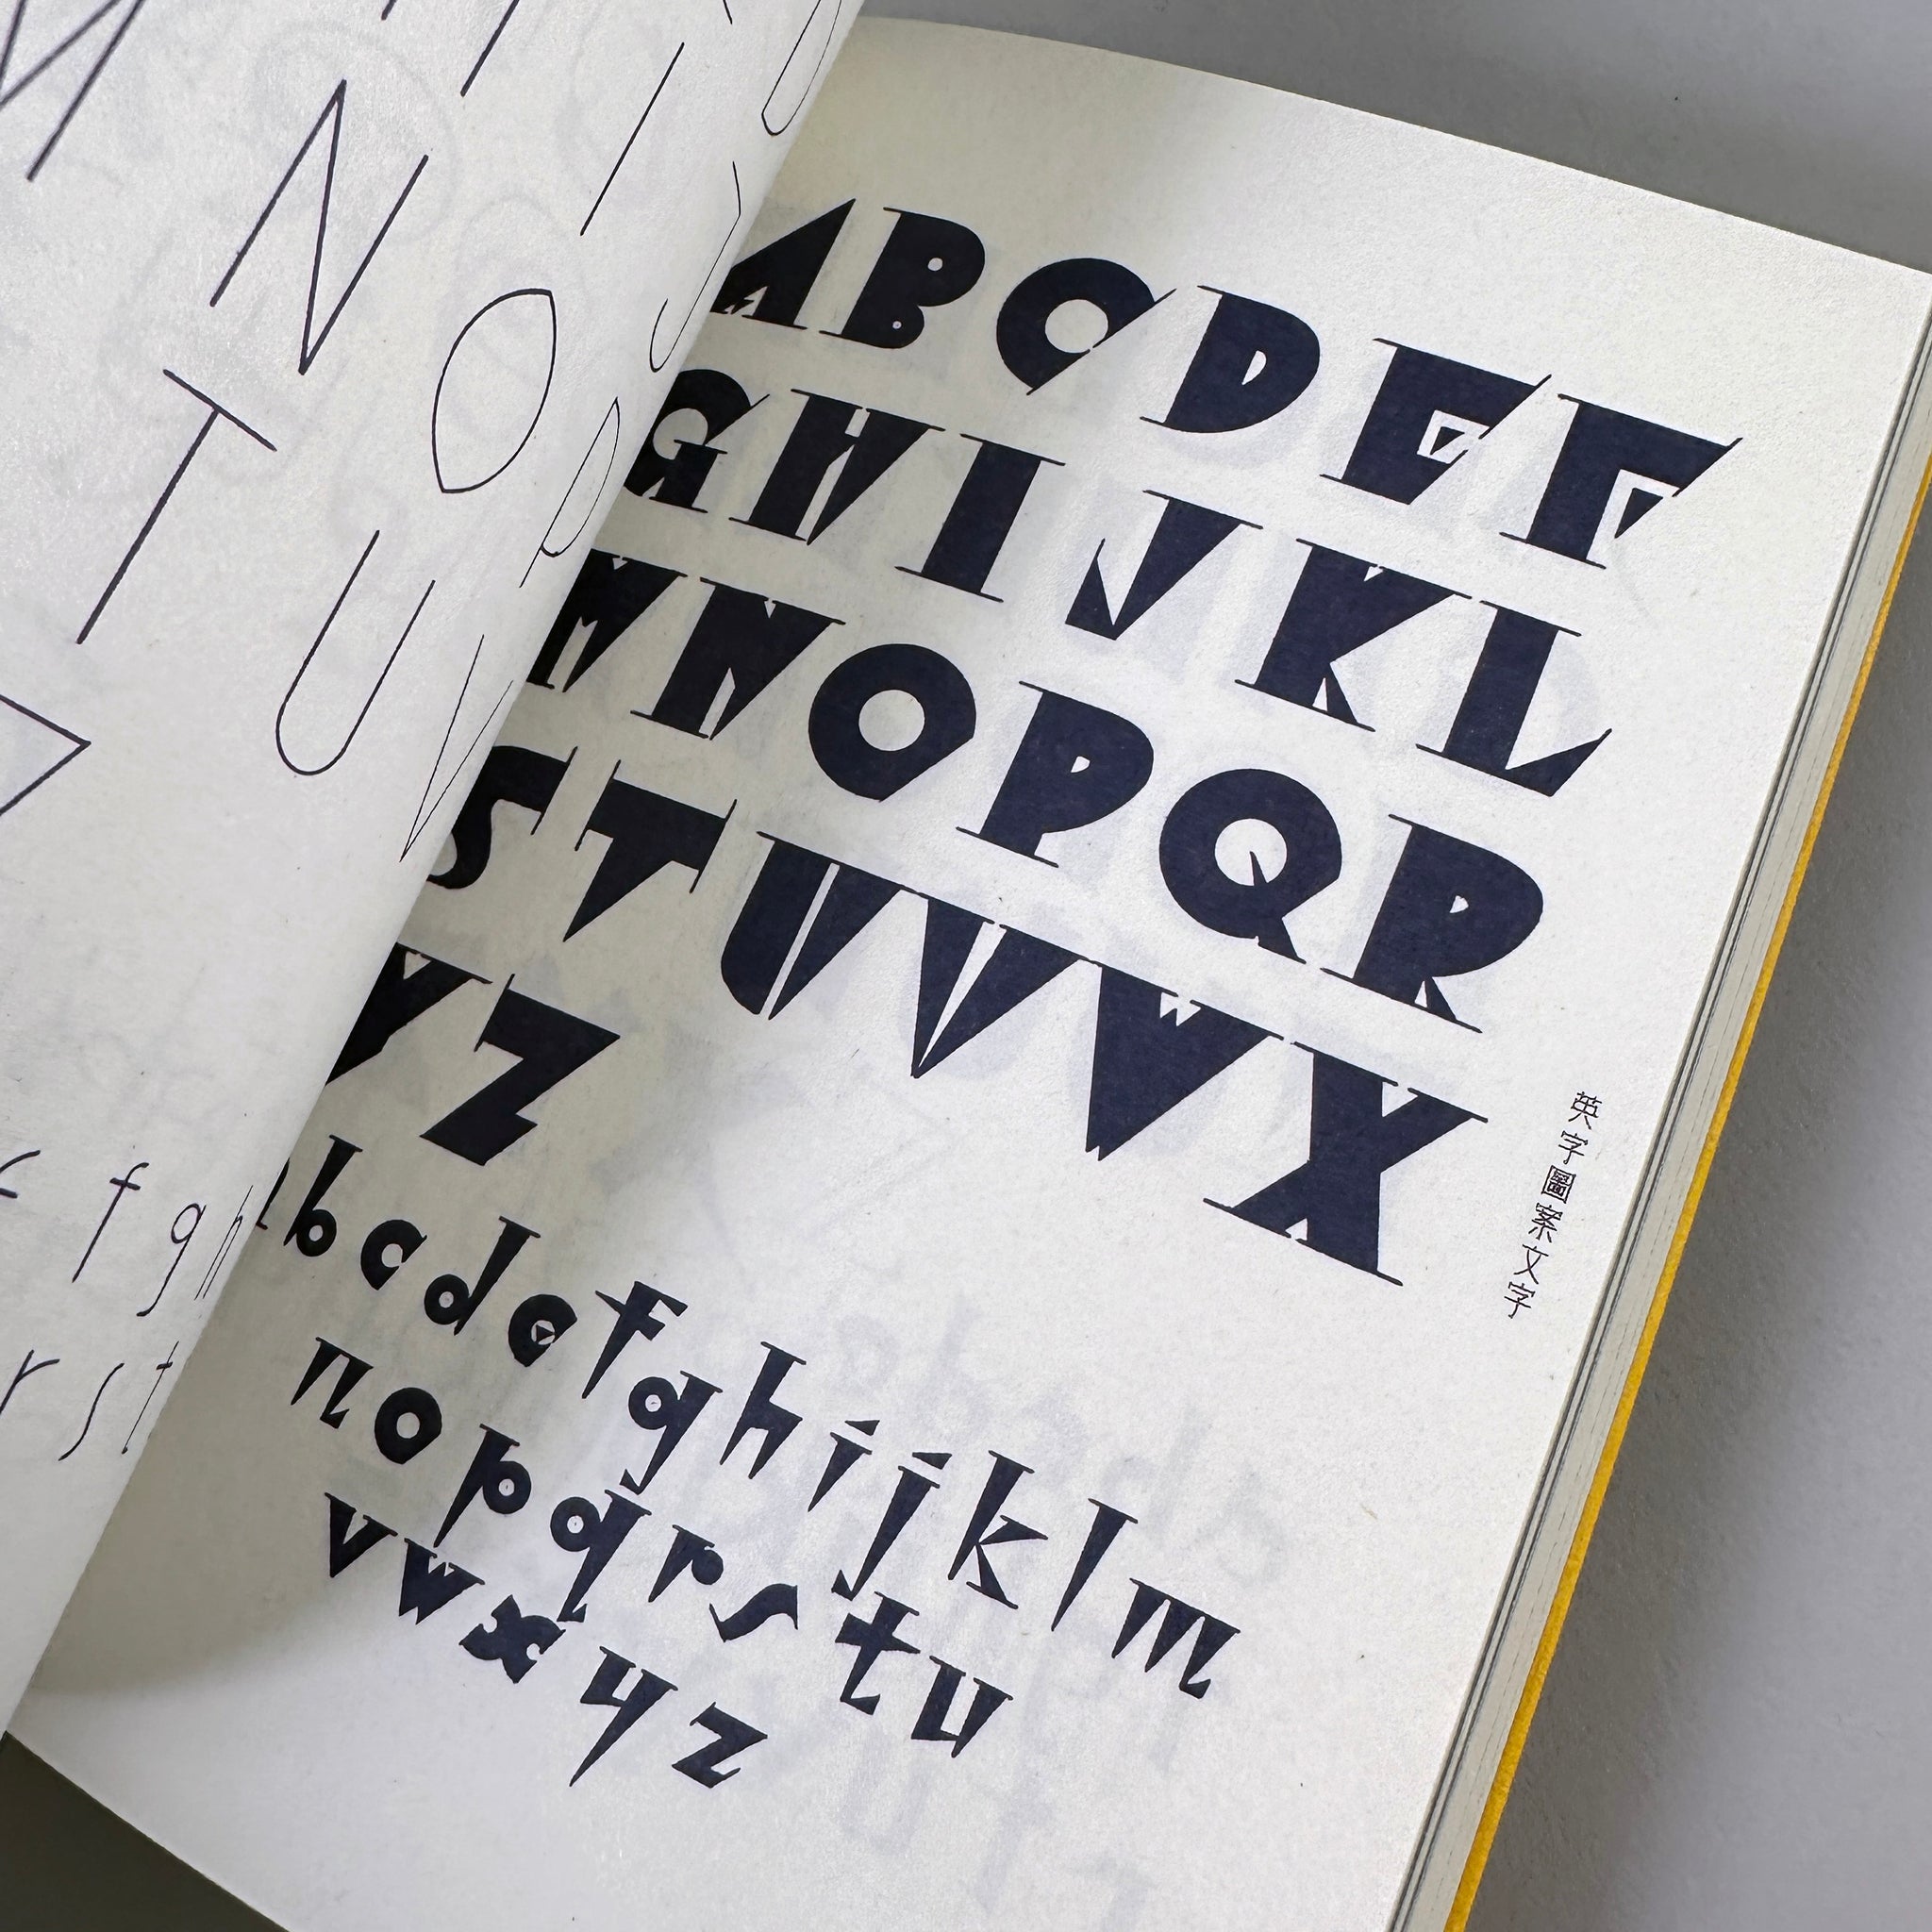 I J
M N O P
T U V
f g h
r s t
A B C D E F
G H I J K L
M N O P Q R
S T U V W X
Y Z
b c d e f g h i j k l m
n o p q r s t u
v w x y z
英字圖案文字